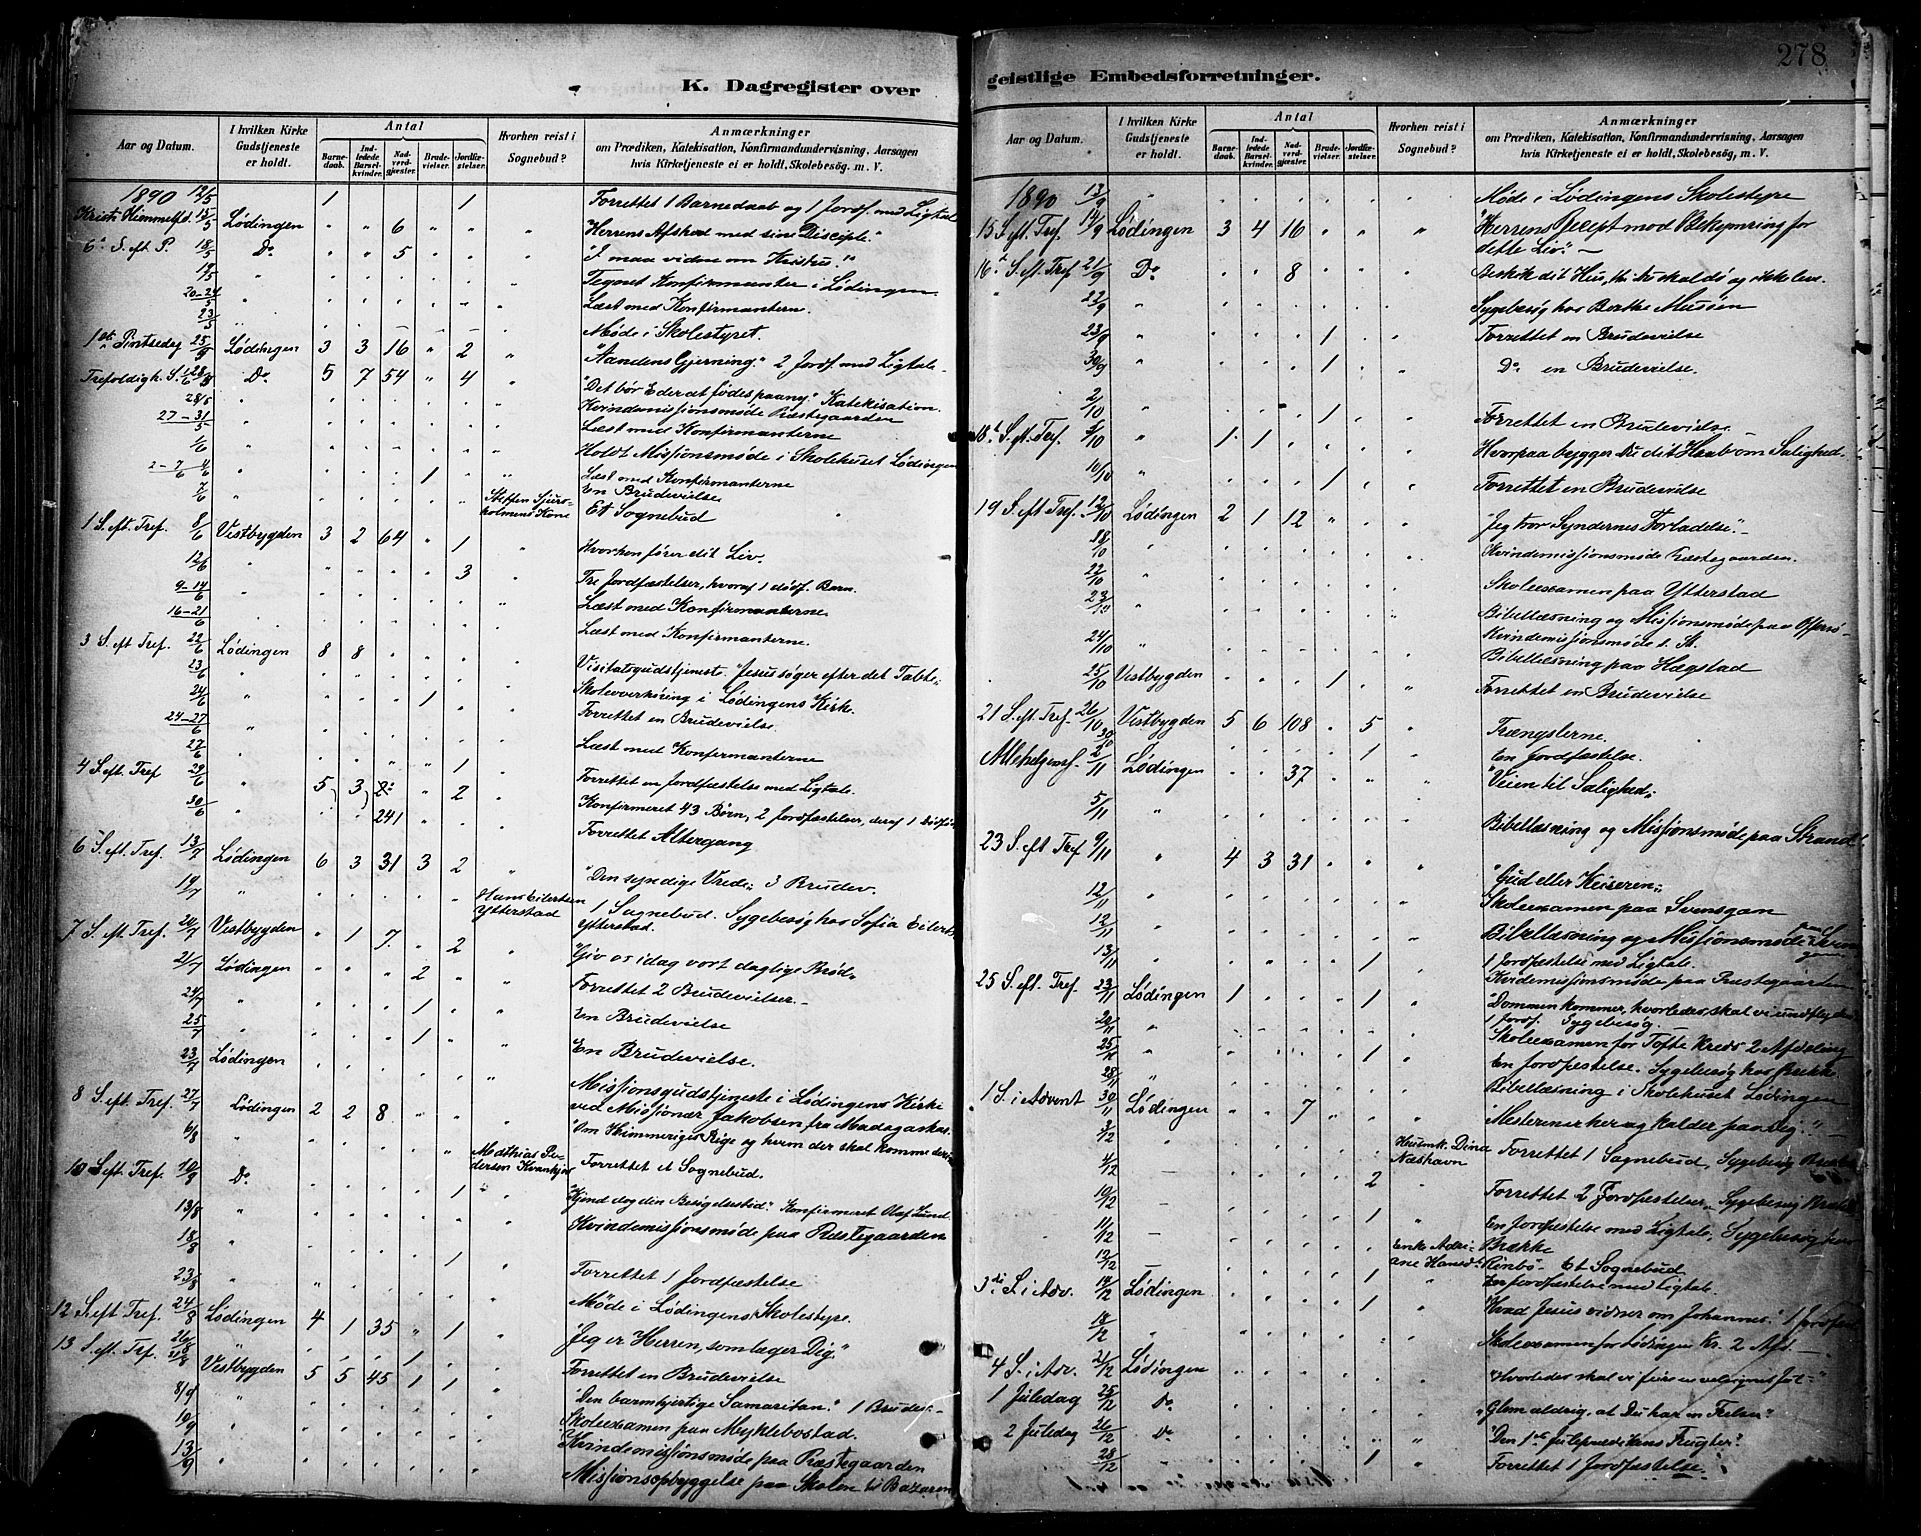 278
K. Dagregister over
geistlige Embedsforretninger.
Aar og Datum. I hvilken Kirke Gudstjeneste er holdt. Antal Barnedaab. Indledede Barselkvinder. Nadverdgjæster. Brudevielser. Jordfæstelser. Hvorhen reist i Sognebud? Anmærkninger om Prædiken, Katekisation, Konfirmandundervisning, Aarsagen hvis Kirketjeneste ei er holdt, Skolebesøg, m. V.
1890 12/5 1 1 Forrettet 1 Barnedaab og 1 Jordf. med Ligtale
Kristi Himmelfd. 15/5 Lødingen " " 6 " " " Herrens Afsked med sine Disciple."
6te S. eft P. 18/5 Do " " 5 " " " "I maa vidne om Kristus."
19/5 Tegnet Konfirmanter i Lødingen
20-24/5 Læst med Konfirmanterne.
23/5 Møde i Skolestyret.
1ste Pintsedag 25/5 Lødingen 3 3 16 " 2 " "Aandens Gjerning." 2 Jordf. med Ligtale
Trefoldigh. S. 1/6 Do 5 7 54 " 4 "Det bør Eder at fødes paany." Katekisation.
28/5 Kvindemissionsmøde Præstegaarden
27-31/5 Læst med Konfirmanterne
1/6 Holdt Missionsmøde i Skolehuset Lødingen
2-7/6 4/6 1 Læst med Konfirmanterne
En Brudevielse
7/6 Steffen Sjursholmens Kone Et Sognebud
1 S. eft. Tref. 8/6 Vestbygden 3 2 64 " 1 Hvorhen fører dit Liv.
12/6 3 Tre Jordfæstelser, hvoraf 1 dødf. Barn.
9-14/6 Læst med Konfirmanterne
16-21/6 Læst med Konfirmanterne.
3 S. eft Tref. 22/6 Lødingen 8 8 Visitatsgudstjenest. "Jesus søger efter det Tabte"
23/6 Skoleoverhøring i Lødingens Kirke.
24/6 1 Forrettet en Brudevielse.
24-27/6 Læst med Konfirmanterne
27/6 1 Forrettet en Jordfæstelse med Ligtale.
4 S. eft Tref 29/6 5 3 2 Konfirmeret 43 Børn, 2 Jordfæstelser, deraf 1
30/6 241 Forrettet Altergang
6 S. eft. Tref. 13/7 Lødingen 6 3 31 3 2 " "Den syndige Vrede" 3 Brudev.
19/7 Hans Eilertsen Ytterstad 1 Sognebud. Sygebesøg hos Sofia Eilerts. Ytterstad.
7 S. eft. Tref. 20/7 Vestbygden 1 7 2 Giv os idag vort daglige Brød
21/7 Lødingen 2 Forrettet 2 Brudevielser
24/7 1 En Brudevielse
25/7 1 En Brudevielse.
23/7 Lødingen Missionsgudstjeneste i Lødingens Kirke ved Missionær Jakobsen fra Madagaskar.
8 S. eft Tref. 27/7 Lødingen 2 2 8 "Om Himmeriges Rige og hvem der skal komme
6/8 Matthias Pedersen Forrettet et Sognebud.
10 S. eft Tref. 10/8 Do 1 "Kjend dog din Besøgelsestid." Konfirmeret Olaf Lund
13/8 Kvindemissionsmøde paa Præstegaarden
18/8 1 Forrettet 1 Jordfæstelse
23/8 Møde i Lødingens Skolestyre.
12 S. eft Tref. 24/8 Lødingen 4 1 35 " 1 "Jeg er Herren, som læger Dig."
26/8 1 Forrettet en Brudevielse
13 S. eft. Tref. 31/8 Vestbygden 5 5 45 1 1 "Den barmhjertige Samaritan." 1 Brudev.
8/9 Skoleexamen paa Myklebostad.
10/9 Kvindemissionsmøde paa Præstegaarden
13/9 Missionsopbyggelse paa Skolen Bazaren
Aar og Datum. I hvilken Kirke Gudstjeneste er holdt. Antal Barnedaab. Indledede Barselkvinder. Nadverdgjæster. Brudevielser. Jordfæstelser. Hvorhen reist i Sognebud? Anmærkninger om Prædiken, Katekisation, Konfirmandundervisning, Aarsagen hvis Kirketjeneste ei er holdt, Skolebesøg, m. V.
1890 13/9 " Møde i Lødingens Skolestyre
15 S. eft. Tref. 14/9 Lødingen 3 4 16 " " " "Herrens Recept mod Bekymring for dette Liv."
16 S. eft. Tref 21/9 Do 8 Beskik dit Hus, thi du skal dø og ikke leve.
22/9 Sygebesøg hos Berthe
23/9 1 Forrettet en Brudevielse
30/9 1 Do en Brudevielse.
2/10 1 Forrettet en Brudevielse
18 S. eft. Tref. 5/10 1 1 Hvorpaa bygger du dit Haab om Salighed.
10/10 1 Forrettet en Brudevielse
19 S. eft Tref. 12/10 Lødingen 2 1 12 "Jeg tror Syndernes Forladelse."
18/10 Kvindemissionsmøde Præstegaarden.
22/10 Skoleexamen paa Ytterstad
23/10 Bibellæsning og Missionsmøde paa
Kvindemissionsmøde
24/10 Bibellæsning paa Hægstad
25/10 Vestbygden 1 Forrettet en Brudevielse
21 S. eft Tref. 26/10 Vestbygden 5 6 108 " 5 Trængslerne.
30/10 1 En Jordfæstelse.
Allehelgensf. 2/11 Lødingen 37 "Veien til Salighed"
5/11 Bibellæsning og Missionsmøde paa Strand
23 S. eft Tref 9/11 " 4 3 31 "Gud eller Keiseren"
12/11 Skoleexamen paa Svensgan
12/11 Bibellæsning og Missionsmøde paa
13/11 1 1 Jordfæstelse med Ligtale.
Kvindemissionsmøde paa Præstegaarden
25 S. eft. Tref. 23/11 Lødingen 1 1 "Dommen kommer, hvorledes skal vi undfly den" 1 Jordf. Sygebesøg.
Skoleexamen for Tofte Kreds 2 Afdeling
25/11 1 En Jordfæstelse. Sygebesøg hos
28/11 Bibellæsning i Skolehuset Lødingen
1 S. i Advent 30/11 Lødingen 7 "Mesteren er her og kalder paa dig."
3/12 Dina Næshavn Forrettet 1 Sognebud, Sygebesøg
4/12 2 Forrettet 2 Jordfæstelser, Sygebesøg
10/12 1 En Jordfæstelse med Ligtale. Sygebesøg hos Brække
11/12 Enke Adriane Hansd. Rinbø Et Sognebud
12/12 1 En Jordfæstelse med Ligtale.
3di S. i Adv. 14/12 Lødingen 1 "Hvad Jesus vidner om Johannes." 1 Jordfæst
18/12 Skoleexamen for Lødingen Kr. 2 Afd.
4 S. i Adv. 21/12 Lødingen "Hvorledes skal vi feire en velsignet Jul"
1 Juledag 25/12 Do "Glem aldrig, at Du har en Frelser"
2 Juledag 26/12 Do "Den 1ste Juleprædikens Frugter"
28/12 1 Forrettet 1 Jordfæstelse